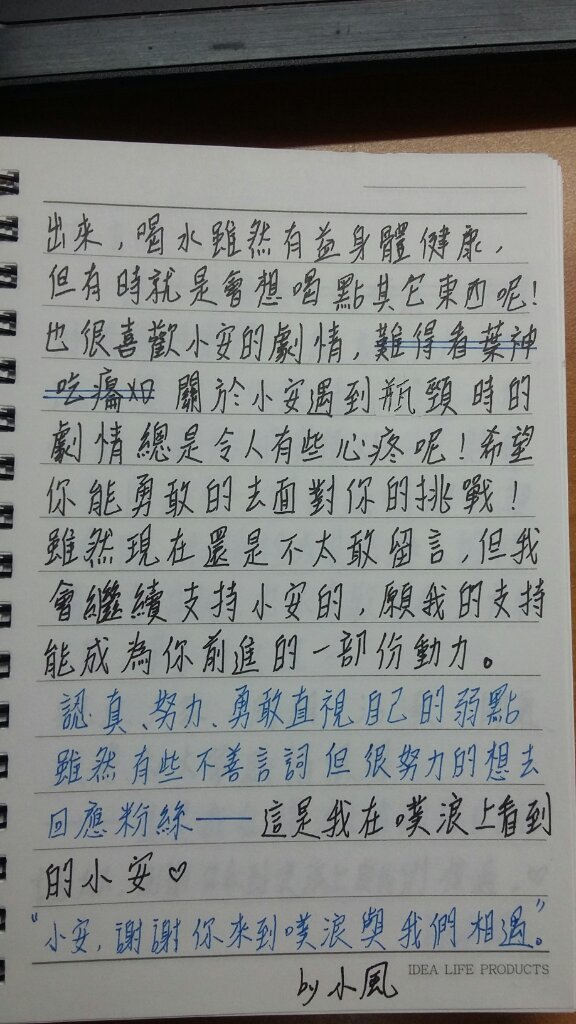 出來，喝水雖然有益身體健康，
但有時就是會想喝點其它東西呢！
也很喜歡小安的劇情，難得看葉神
吃癟如 關於小安遇到瓶頸時的
劇情總是令人有些心疼呢！希望
你能勇敢的去面對你的挑戰！
雖然現在還是不太敢留言，但我
會繼續支持小安的，願我的支持
能成為你前進的一部份動力。
認真、努力、勇敢直視自己的弱點
雖然有些不善言詞但很努力的想去
回應粉絲——這是我在噗浪上看到
的小安♡
“小安，謝謝你來到噗浪與我們相遇。”
by小風
IDEA LIFE PRODUCTS